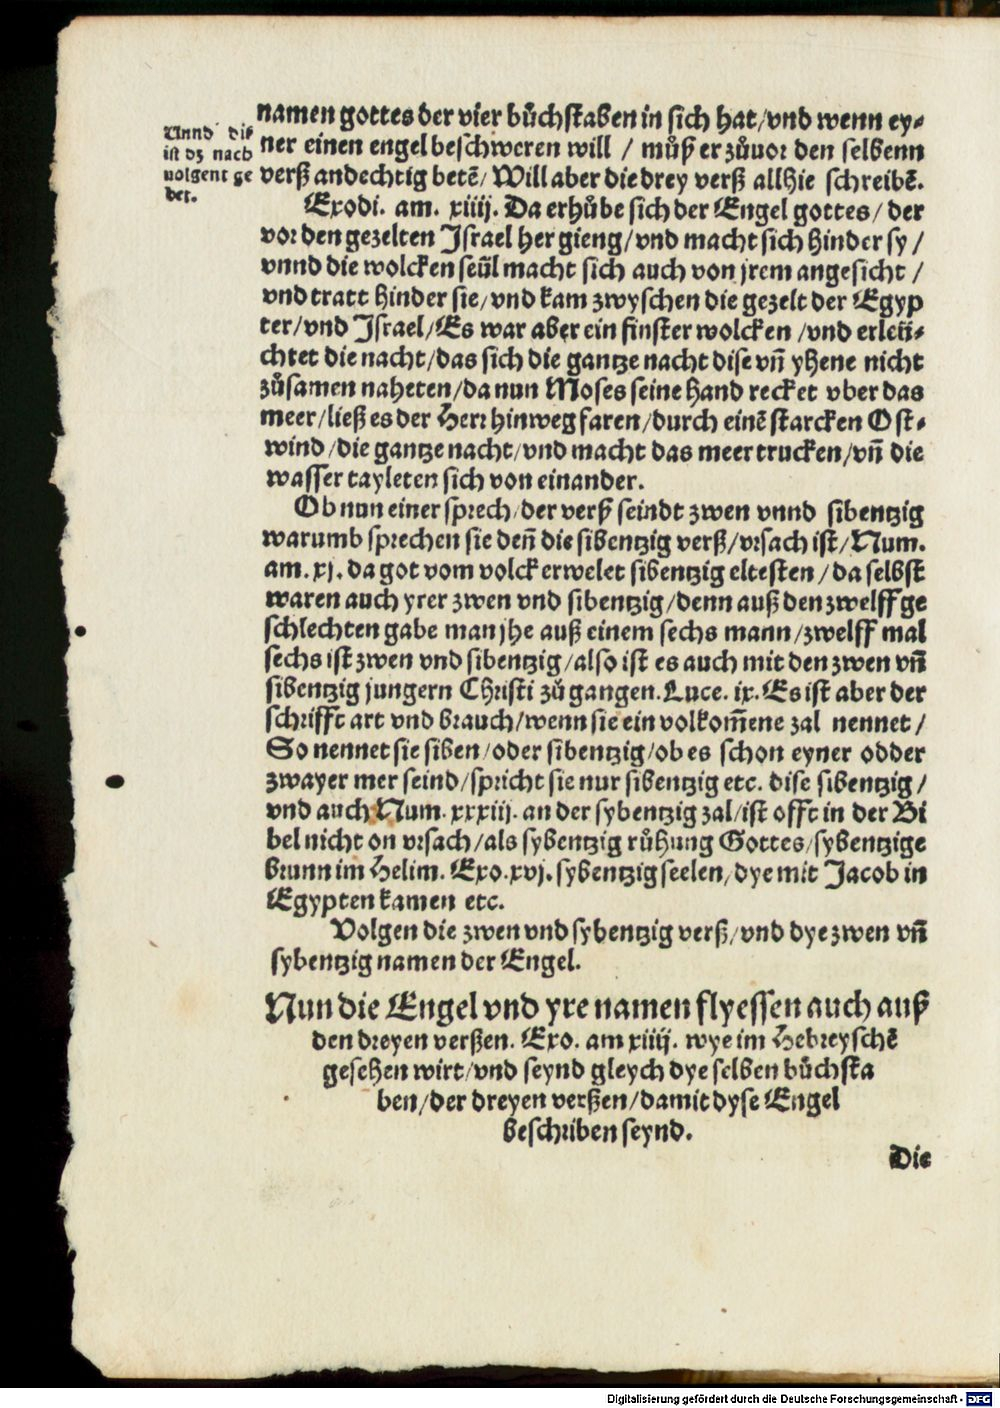 Unnd diß
ist dz nach
uolgent ge
bet.
namen gottes der vier bůchstaben in sich hat/vnd wenn ey⸗
ner einen engel beschweren will / můß er zůuor den selbenn
verß andechtig betē/ Will aber die drey verß allhie schreibē.
Exodi. am. xiiij. Da erhůbe sich der Engel gottes/ der
vor den gezelten Jsrael her gieng/vnd macht sich hinder sy /
vnnd die wolcken seül macht sich auch von jrem angesicht /
vnd tratt hinder sie/vnd kam zwyschen die gezelt der Egyp
ter/vnd Jsrael/Es war aber ein finster wolcken /vnd erleü⸗
chtet die nacht/das sich die gantze nacht dise vñ yhene nicht
zůsamen naheten/da nun Moses seine hand recket vber das
meer/ließ es der Herr hinweg faren/durch einē starcken Ost⸗
wind/die gantze nacht/vnd macht das meer trucken/vñ die
wasser tayleten sich von einander.
Ob nun einer sprech/der verß seindt zwen vnnd sibentzig
warumb sprechen sie deñ die sibentzig verß/vrsach ist/Num.
am. xj. da got vom volck erwelet sibentzig eltesten/da selbst
waren auch yrer zwen vnd sibentzig/denn auß den zwelff ge
schlechten gabe man jhe auß einem sechs mann/zwelff mal
sechs ist zwen vnd sibentzig/also ist es auch mit den zwen vñ
sibentzig jungern Christi zů gangen. Luce. ix. Es ist aber der
schrifft art vnd brauch/wenn sie ein volkom̄ene zal nennet/
So nennet sie siben/oder sibentzig/ob es schon eyner odder
zwayer mer seind/spricht sie nur sibentzig etc. dise sibentzig/
vnd auch Num. xxxiij. an der sybentzig zal/ist offt in der Bi
bel nicht on vrsach/als sybentzig růhung Gottes/sybentzige
brunn im Helim. Exo. xvj. sybentzig seelen, dye mit Jacob in
Egypten kamen etc.
Volgen die zwen vnd sybentzig verß/vnd dye zwen vñ
sybentzig namen der Engel.
Nun die Engel vnd yre namen flyessen auch auß
den dreyen verßen. Exo. am xiiij. wye im Hebreyschē
gesehen wirt/vnd seynd gleych dye selben bůchsta
ben/der dreyen verßen/damit dyse Engel
beschriben seynd.
Die
Digitalisierung gefördert durch die Deutsche Forschungsgemeinschaft - DFG